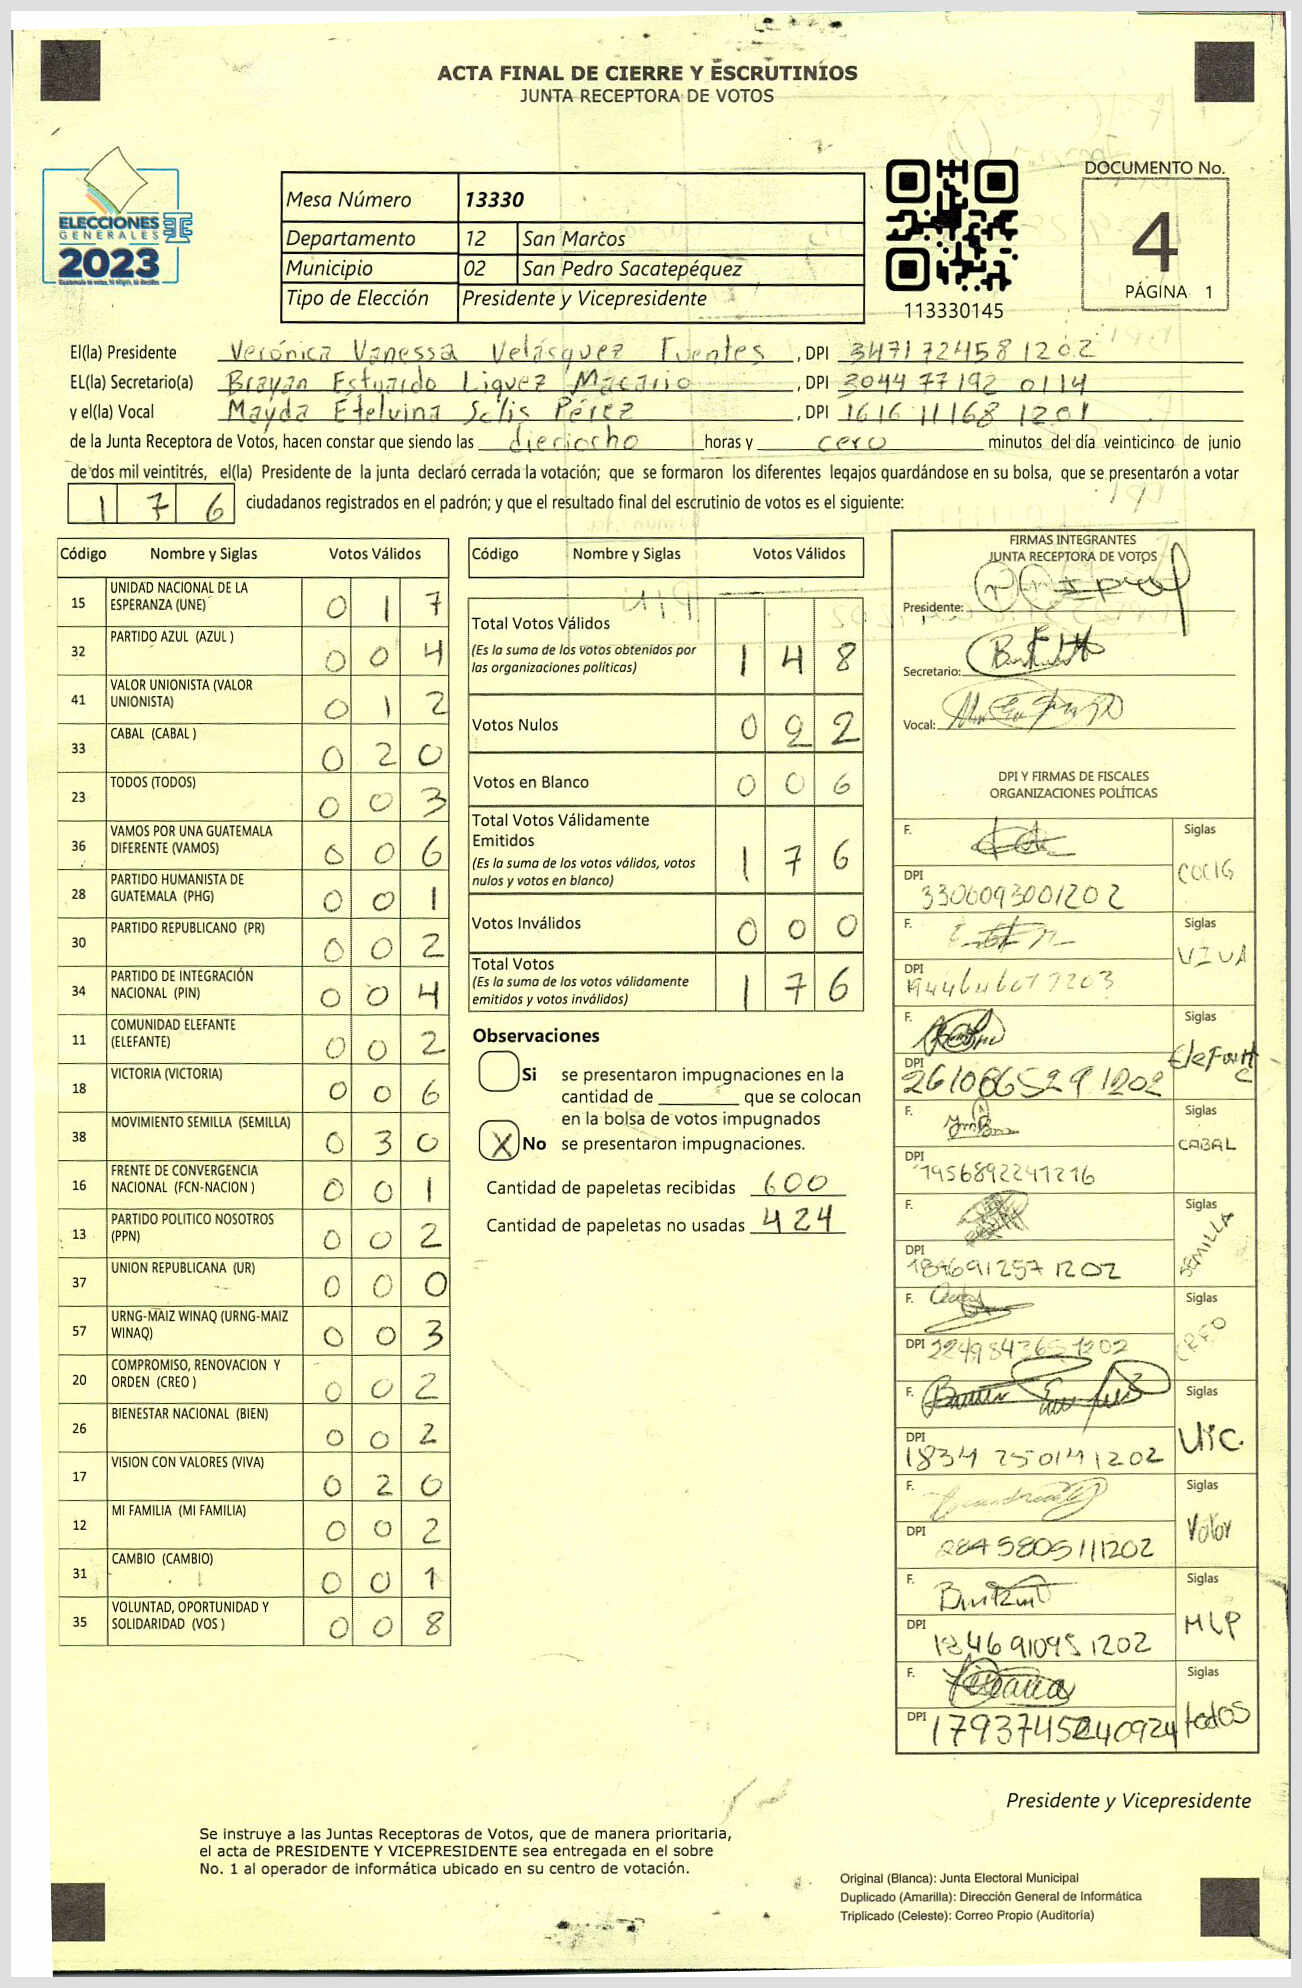 ACTA FINAL DE CIERRE Y ESCRUTINIOS
JUNTA RECEPTORA DE VOTOS
ELECCIONES
GENERALES
2023
Mesa Número 13330
Departamento 12 San Marcos
Municipio 02 San Pedro Sacatepéquez
Tipo de Elección Presidente y Vicepresidente
113330145
DOCUMENTO No.
4
PÁGINA 1
El(la) Presidente Verónica Vanessa Velásquez Fuentes, DPI 3471724581202
EL(la) Secretario(a) Brayan Estuardo Liquez Macario, DPI 3044 77192 0114
y el(la) Vocal Mayda Etelvina Solis Pérez, DPI 1616 11168 1201
de la Junta Receptora de Votos, hacen constar que siendo las dieciocho horas y cero minutos del día veinticinco de junio
de dos mil veintitrés, el(la) Presidente de la junta declaró cerrada la votación; que se formaron los diferentes legajos guardándose en su bolsa, que se presentarón a votar
176 ciudadanos registrados en el padrón; y que el resultado final del escrutinio de votos es el siguiente:
Código Nombre y Siglas Votos Válidos
15 UNIDAD NACIONAL DE LA ESPERANZA (UNE) 017
32 PARTIDO AZUL (AZUL ) 004
41 VALOR UNIONISTA (VALOR UNIONISTA) 012
33 CABAL (CABAL ) 020
23 TODOS (TODOS) 003
36 VAMOS POR UNA GUATEMALA DIFERENTE (VAMOS) 006
28 PARTIDO HUMANISTA DE GUATEMALA (PHG) 001
30 PARTIDO REPUBLICANO (PR) 002
34 PARTIDO DE INTEGRACIÓN NACIONAL (PIN) 004
11 COMUNIDAD ELEFANTE (ELEFANTE) 002
18 VICTORIA (VICTORIA) 006
38 MOVIMIENTO SEMILLA (SEMILLA) 030
16 FRENTE DE CONVERGENCIA NACIONAL (FCN-NACION ) 001
13 PARTIDO POLITICO NOSOTROS (PPN) 002
37 UNION REPUBLICANA (UR) 000
57 URNG-MAIZ WINAQ (URNG-MAIZ WINAQ) 003
20 COMPROMISO, RENOVACION Y ORDEN (CREO ) 002
26 BIENESTAR NACIONAL (BIEN) 002
17 VISION CON VALORES (VIVA) 020
12 MI FAMILIA (MI FAMILIA) 002
31 CAMBIO (CAMBIO) 001
35 VOLUNTAD, OPORTUNIDAD Y SOLIDARIDAD (VOS ) 008
Código Nombre y Siglas Votos Válidos
Total Votos Válidos
(Es la suma de los votos obtenidos por
las organizaciones políticas) 148
Votos Nulos 022
Votos en Blanco 006
Total Votos Válidamente
Emitidos
(Es la suma de los votos válidos, votos
nulos y votos en blanco) 176
Votos Inválidos 000
Total Votos
(Es la suma de los votos válidamente
emitidos y votos inválidos) 176
Observaciones
Si se presentaron impugnaciones en la
cantidad de ________ que se colocan
en la bolsa de votos impugnados
X No se presentaron impugnaciones.
Cantidad de papeletas recibidas 600
Cantidad de papeletas no usadas 424
FIRMAS INTEGRANTES
JUNTA RECEPTORA DE VOTOS
Presidente:
Secretario:
Vocal:
DPI Y FIRMAS DE FISCALES
ORGANIZACIONES POLÍTICAS
F. Siglas
DPI 3306093001202
F. Siglas VIVA
DPI
F. Siglas Elefante
DPI 2610665291202
F. Siglas CABAL
DPI 1956892241216
F. Siglas SEMILLA
DPI 1876912571202
F. Siglas CREO
DPI 2249843651202
F. Siglas UIC.
DPI 1834 250141202
F. Siglas Valor
DPI 2845805111202
F. Siglas MLP
DPI 1846910951202
F. Siglas todos
DPI 1793745240924
Presidente y Vicepresidente
Se instruye a las Juntas Receptoras de Votos, que de manera prioritaria,
el acta de PRESIDENTE Y VICEPRESIDENTE sea entregada en el sobre
No. 1 al operador de informática ubicado en su centro de votación.
Original (Blanca): Junta Electoral Municipal
Duplicado (Amarilla): Dirección General de Informática
Triplicado (Celeste): Correo Propio (Auditoría)